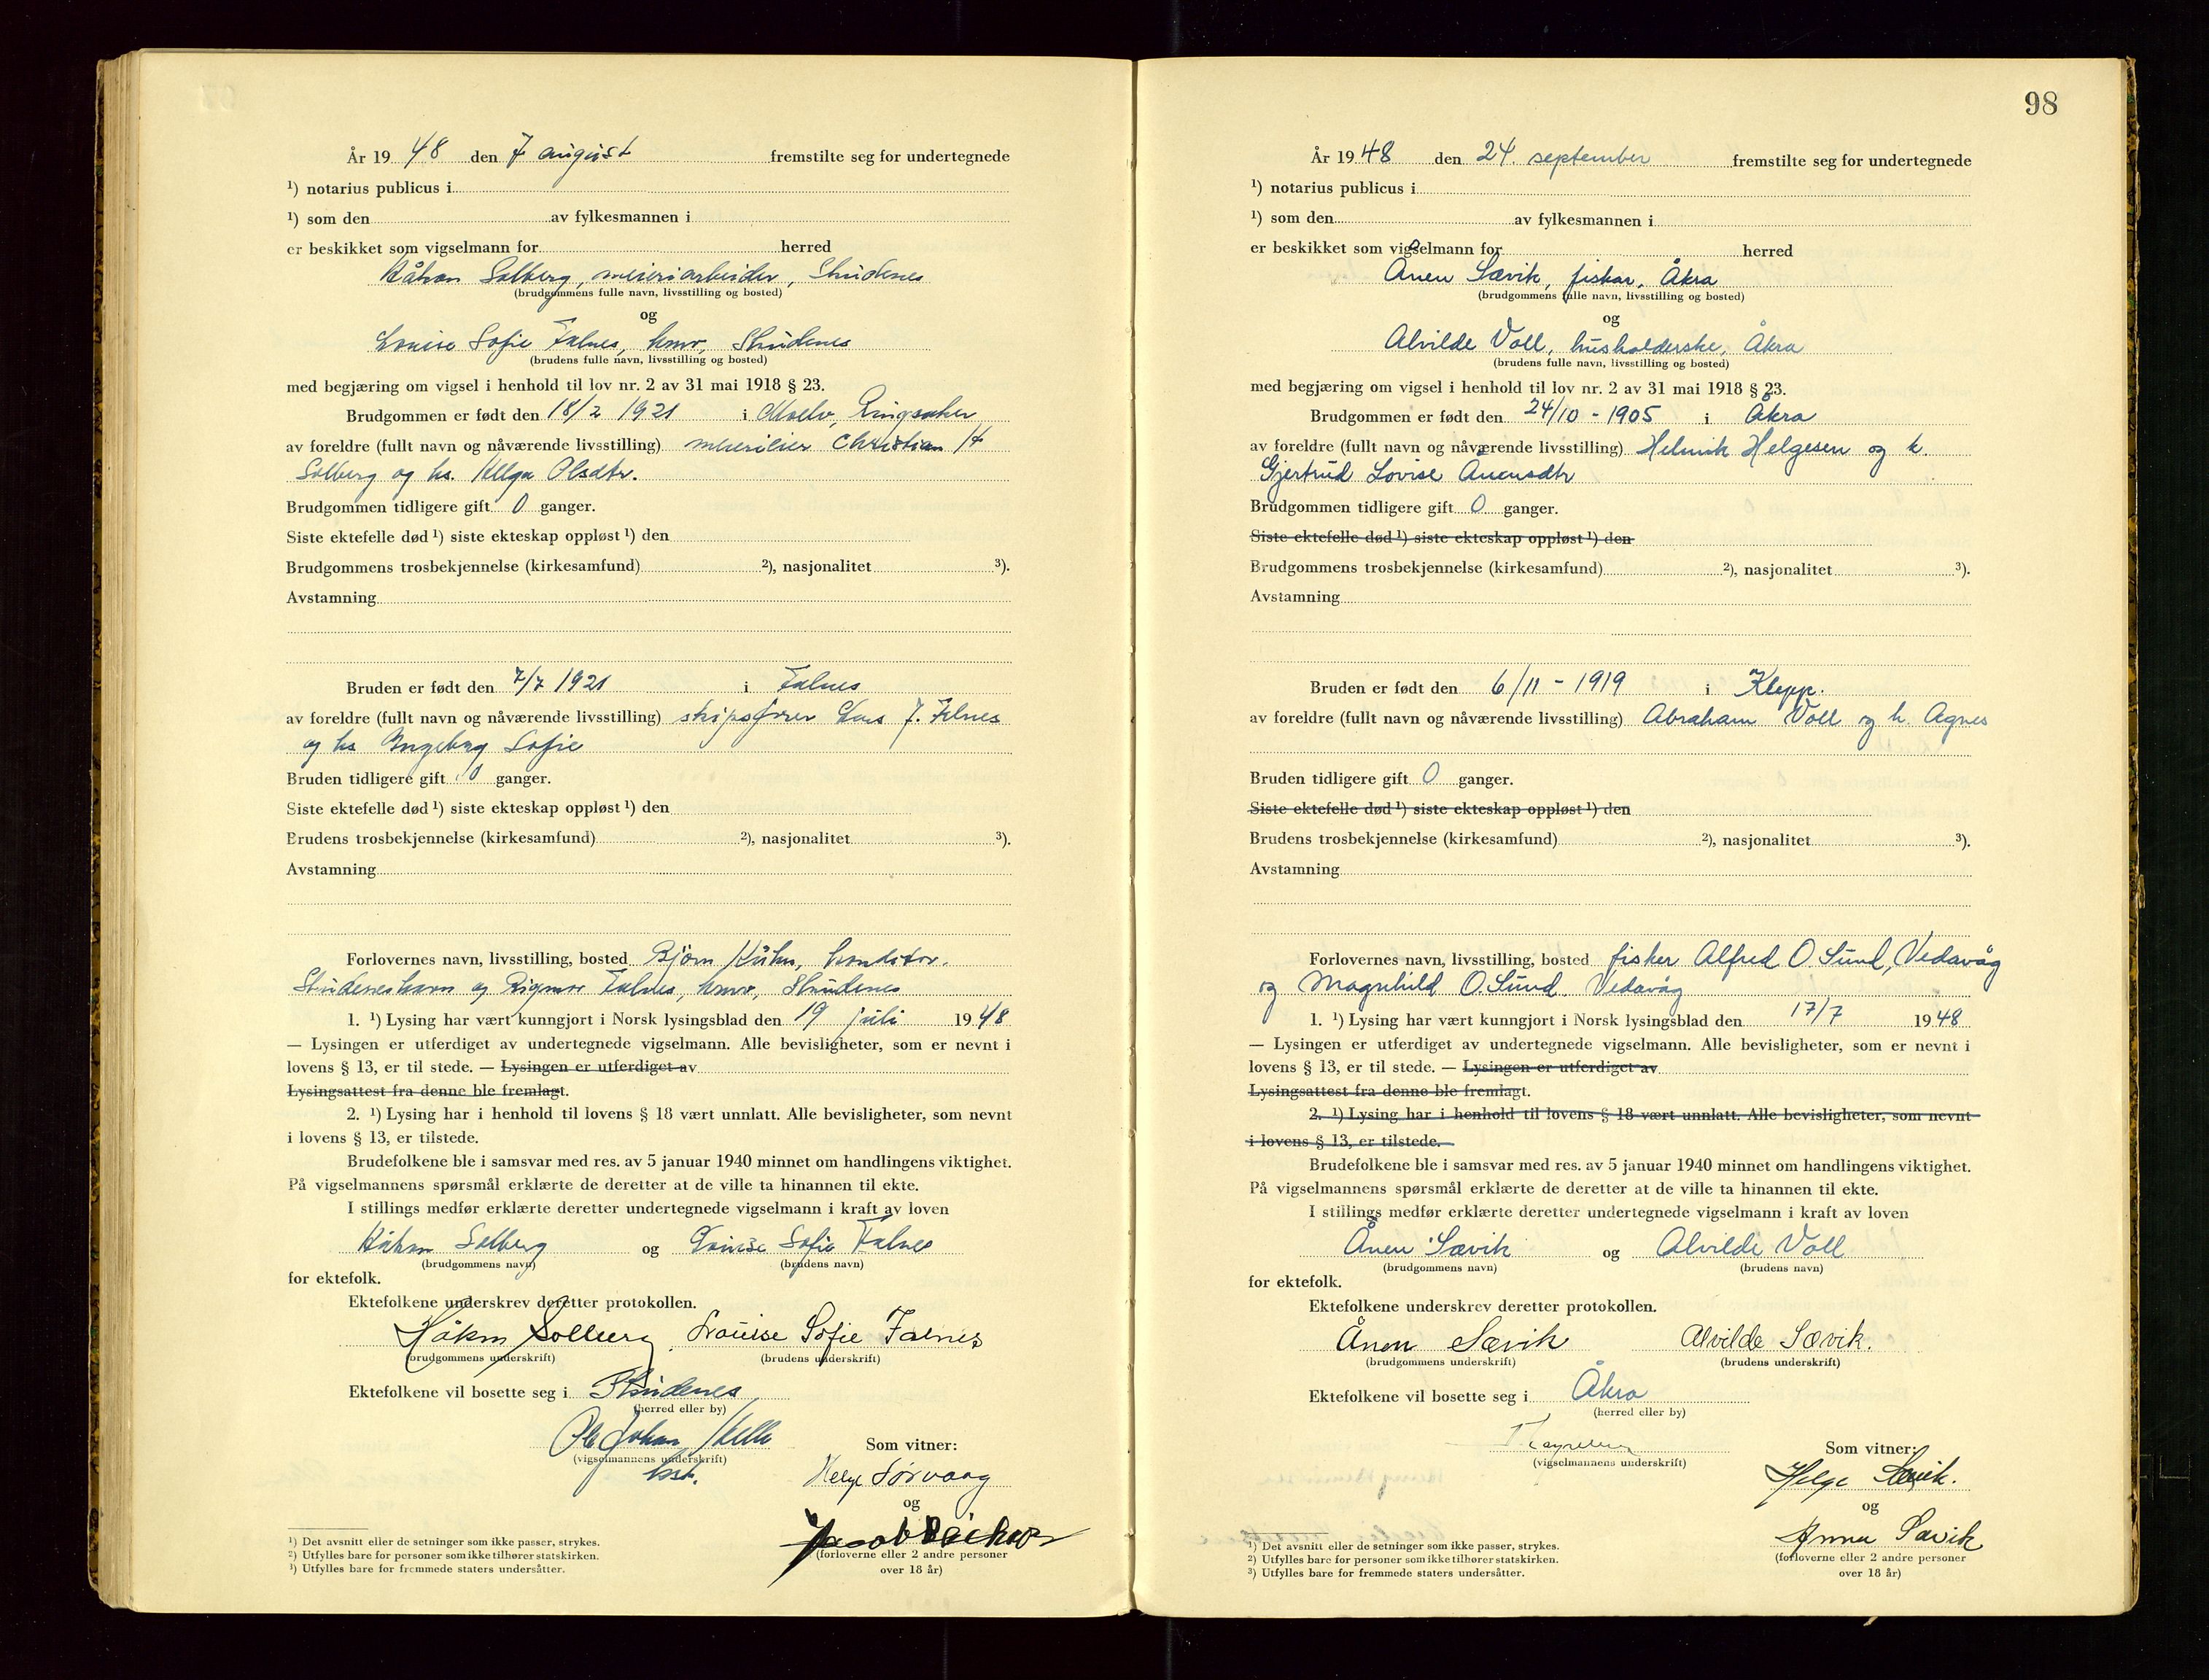 År 19 48 den 7 august fremstilte seg for undertegnede
¹) notarius publicus i
¹) som den av fylkesmannen i
er beskikket som vigselmann for herred
Håkon Solberg, meieriarbeider, Skudenes
(brudgommens fulle navn, livsstilling og bosted)
og
Louise Sofie Falnes, hmv, Skudenes
(brudens fulle navn, livsstilling og bosted)
med begjæring om vigsel i henhold til lov nr. 2 av 31 mai 1918 § 23.
Brudgommen er født den 18/2 1921 i Moelv, Ringsaker
av foreldre (fullt navn og nåværende livsstilling) Christian H
Solberg og hs. Helga Olsdtr.
Brudgommen tidligere gift 0 ganger.
Siste ektefelle død ¹) siste ekteskap oppløst ¹) den
Brudgommens trosbekjennelse (kirkesamfund) ²), nasjonalitet ³).
Avstamning
Bruden er født den 7/7 1921 i Falnes
av foreldre (fullt navn og nåværende livsstilling) skipsfører Lars J. Falnes
og hs Ingeborg Sofie
Bruden tidligere gift 0 ganger.
Siste ektefelle død ¹) siste ekteskap oppløst ¹) den
Brudens trosbekjennelse (kirkesamfund) ²), nasjonalitet ³).
Avstamning
Forlovernes navn, livsstilling, bosted Bjørn Kühn, konditor.
Skudeneshavn og Rigmor Falnes, hmv, Skudenes
1. ¹) Lysing har vært kunngjort i Norsk lysingsblad den 19 juli 19 48
— Lysingen er utferdiget av undertegnede vigselmann. Alle bevisligheter, som er nevnt i
lovens § 13, er til stede. — Lysingen er utferdiget av
Lysingsattest fra denne ble fremlagt.
2. ¹) Lysing har i henhold til lovens § 18 vært unnlatt. Alle bevisligheter, som nevnt
i lovens § 13, er tilstede.
Brudefolkene ble i samsvar med res. av 5 januar 1940 minnet om handlingens viktighet.
På vigselmannens spørsmål erklærte de deretter at de ville ta hinannen til ekte.
I stillings medfør erklærte deretter undertegnede vigselmann i kraft av loven
Håkon Solberg og Louise Sofie Falnes
(brudgommens navn) (brudens navn)
for ektefolk.
Ektefolkene underskrev deretter protokollen.
Håkon Solberg Louise Sofie Falnes
(brudgommens underskrift) (brudens underskrift)
Ektefolkene vil bosette seg i Skudenes
(herred eller by)
Ole Johan
(vigselmannens underskrift)
Som vitner:
Helge Sørvaag
og
(forloverne eller 2 andre personer
over 18 år)
¹) Det avsnitt eller de setninger som ikke passer, strykes.
²) Utfylles bare for personer som ikke tilhører statskirken.
³) Utfylles bare for fremmede staters undersåtter.
98
År 19 48 den 24. september fremstilte seg for undertegnede
¹) notarius publicus i
¹) som den av fylkesmannen i
er beskikket som vigselmann for herred
Ånen Sævik, fisker, Åkra
(brudgommens fulle navn, livsstilling og bosted)
og
Alvilde Voll, husholderske, Åkra
(brudens fulle navn, livsstilling og bosted)
med begjæring om vigsel i henhold til lov nr. 2 av 31 mai 1918 § 23.
Brudgommen er født den 24/10 - 1905 i Åkra
av foreldre (fullt navn og nåværende livsstilling) Helmik Helgesen og h.
Gjertrud Lovise Ånensdtr
Brudgommen tidligere gift 0 ganger.
Siste ektefelle død ¹) siste ekteskap oppløst ¹) den
Brudgommens trosbekjennelse (kirkesamfund) ²), nasjonalitet ³).
Avstamning
Bruden er født den 6/11 - 1919 i Klepp.
av foreldre (fullt navn og nåværende livsstilling) Abraham Voll og h. Agnes
Bruden tidligere gift 0 ganger.
Siste ektefelle død ¹) siste ekteskap oppløst ¹) den
Brudens trosbekjennelse (kirkesamfund) ²), nasjonalitet ³).
Avstamning
Forlovernes navn, livsstilling, bosted fisker Alfred O. Sund, Vedavåg
og Magnhild O. Sund. Vedavåg
1. ¹) Lysing har vært kunngjort i Norsk lysingsblad den 17/7 19 48
— Lysingen er utferdiget av undertegnede vigselmann. Alle bevisligheter, som er nevnt i
lovens § 13, er til stede. — Lysingen er utferdiget av
Lysingsattest fra denne ble fremlagt.
2. ¹) Lysing har i henhold til lovens § 18 vært unnlatt. Alle bevisligheter, som nevnt
i lovens § 13, er tilstede.
Brudefolkene ble i samsvar med res. av 5 januar 1940 minnet om handlingens viktighet.
På vigselmannens spørsmål erklærte de deretter at de ville ta hinannen til ekte.
I stillings medfør erklærte deretter undertegnede vigselmann i kraft av loven
Ånen Sævik og Alvilde Voll
(brudgommens navn) (brudens navn)
for ektefolk.
Ektefolkene underskrev deretter protokollen.
Ånen Sævik Alvilde Sævik.
(brudgommens underskrift) (brudens underskrift)
Ektefolkene vil bosette seg i Åkra
(herred eller by)
(vigselmannens underskrift)
Som vitner:
Helge Sævik.
og
Anna Sævik
(forloverne eller 2 andre personer
over 18 år)
¹) Det avsnitt eller de setninger som ikke passer, strykes.
²) Utfylles bare for personer som ikke tilhører statskirken.
³) Utfylles bare for fremmede staters undersåtter.